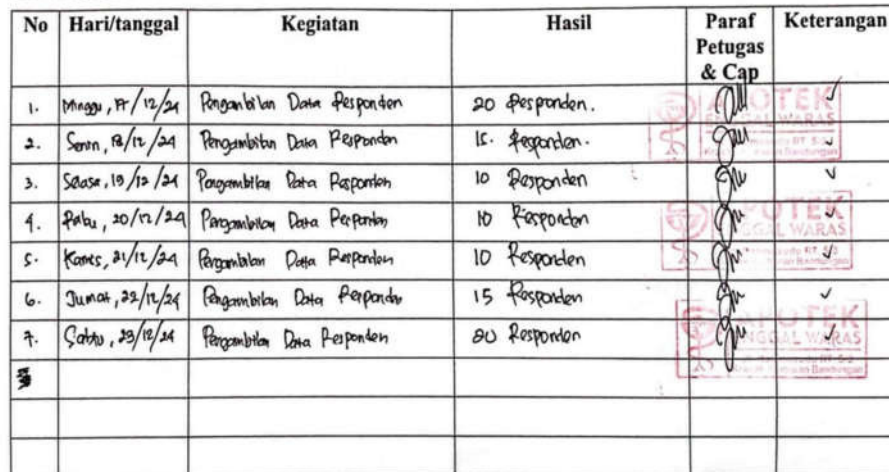 No Hari/tanggal Kegiatan Hasil Paraf Petugas & Cap Keterangan
1. Minggu, 17/12/24 Pengambilan Data Responden 20 Responden. ✓
2. Senin, 18/12/24 Pengambilan Data Responden 15. Responden. ✓
3. Selasa, 19/12/24 Pengambilan Data Responden 10 Responden ✓
4. Rabu, 20/12/24 Pengambilan Data Responden 10 Responden ✓
5. Kamis, 21/12/24 Pengambilan Data Responden 10 Responden ✓
6. Jumat, 22/12/24 Pengambilan Data Responden 15 Responden ✓
7. Sabtu, 23/12/24 Pengambilan Data Responden 20 Responden ✓
APOTEK
WARAS
APOTEK
NGGAL WARAS
APOTEK
NGGAL WARAS